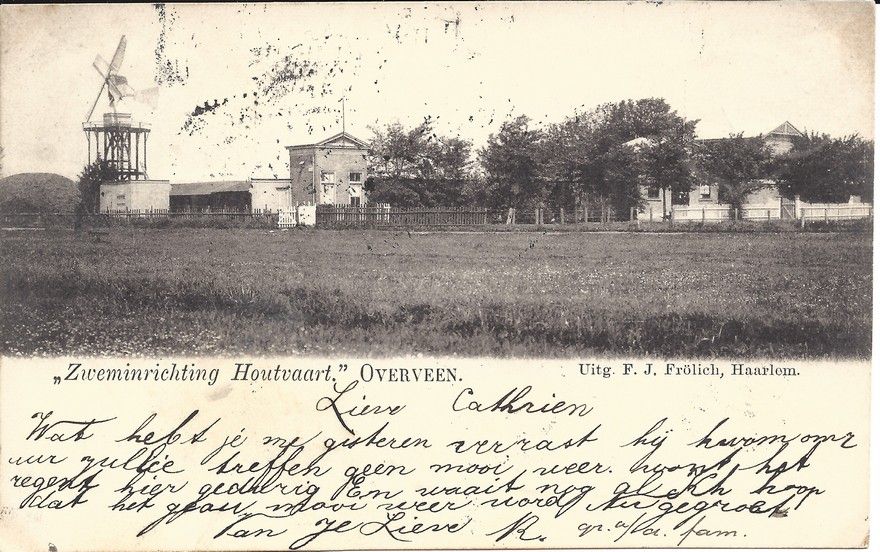 „Zweminrichting Houtvaart.” OVERVEEN.
Uitg. F. J. Frölich, Haarlem.
Lieve Cathrien
Wat hebt je me gisteren verrast hy kwam om 2
uur zullie treffen geen mooi weer. want het
regent hier gedurig En waait nog al Ik hoop
dat het gauw mooi weer word Nu gegroet
Van Je Lieve R. gr. a/a. fam.